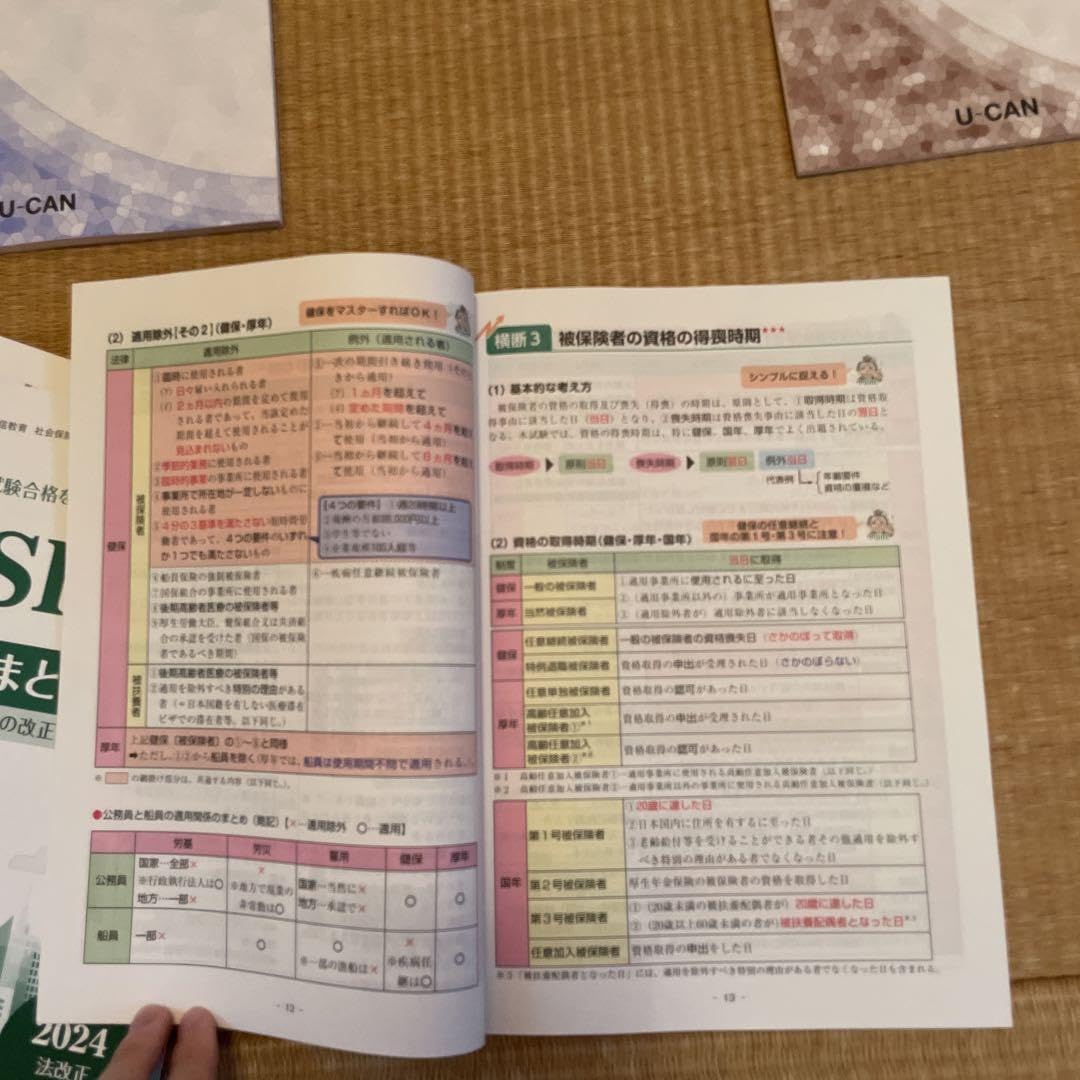 U-CAN
U-CAN
信教育 社会保
試験合格を
SI
まと
の改正
2024
法改正
(2) 適用除外【その2】(健保・厚年)
健保をマスターすればOK!
法律
適用除外
例外(適用される者)
健保
被保険者
①臨時に使用される者
(ア) 日々雇い入れられる者
(イ) 2ヵ月以内の期間を定めて使用
される者であって、当該定めた
期間を超えて使用されることが
見込まれないもの
②季節的業務に使用される者
③臨時的事業の事業所に使用される者
④事業所で所在地が一定しないものに
使用される者
⑤4分の3基準を満たさない短時間労
働者であって、4つの要件のいずれ
か1つでも満たさないもの
①一次の期間引き続き使用(そのと
きから適用)
(ア) 1ヵ月を超えて
(イ) 定めた期間を超えて
②一当初から継続して4ヵ月を超え
て使用(当初から適用)
③一当初から継続して6ヵ月を超え
て使用(当初から適用)
【4つの要件】①週20時間以上
②報酬の月額88,000円以上
③学生等でない
⑥船員保険の強制被保険者
⑦国保組合の事業所に使用される者
⑧後期高齢者医療の被保険者等
⑨厚生労働大臣、健保組合又は共済組
合の承認を受けた者(国保の被保険
者であるべき期間)
⑥一疾病任意継続被保険者
被扶養者
①後期高齢者医療の被保険者等
②適用を除外すべき特別の理由がある
者(=日本国籍を有しない医療滞在
ビザでの滞在者等。以下同じ。)
厚年
上記健保〔被保険者〕の①~⑤と同様
➡ただし、①②から船員を除く(厚年では、船員は使用期間不問で適用される。)
※ の網掛け部分は、共通する内容(以下同じ。)。
●公務員と船員の適用関係のまとめ(略記)【×…適用除外 ○…適用】
労基
労災
雇用
健保
厚年
公務員
国家…全部×
※行政執行法人は○
地方…一部×
×
※地方で現業の
非常勤は○
国家…当然に×
地方…承認で×
○
○
船員
一部×
○
○
※一部の漁船は×
×
※疾病任
継は○
○
- 12 -
横断3 被保険者の資格の得喪時期★★★
シンプルに捉える!
(1) 基本的な考え方
被保険者の資格の取得及び喪失(得喪)の時期は、原則として、①取得時期は資格取
得事由に該当した日(当日)となり、②喪失時期は資格喪失事由に該当した日の翌日と
なる。本試験では、資格の得喪時期は、特に健保、国年、厚年でよく出題されている。
取得時期 ▶ 原則当日 喪失時期 ▶ 原則翌日 例外当日
代表例
年齢要件
資格の重複など
健保の任意継続と
国年の第1号・第3号に注意!
(2) 資格の取得時期(健保・厚年・国年)
制度
被保険者
当日に取得
健保
一般の被保険者
厚年
当然被保険者
①適用事業所に使用されるに至った日
②(適用事業所以外の)事業所が適用事業所となった日
③(適用除外者が)適用除外者に該当しなくなった日
健保
任意継続被保険者
一般の被保険者の資格喪失日(さかのぼって取得)
特例退職被保険者
資格取得の申出が受理された日(さかのぼらない)
厚年
任意単独被保険者
資格取得の認可があった日
高齢任意加入
被保険者①※1
資格取得の申出が受理された日
高齢任意加入
被保険者②※2
資格取得の認可があった日
※1 高齢任意加入被保険者①─適用事業所に使用される高齢任意加入被保険者(以下同じ。)
※2 高齢任意加入被保険者②─適用事業所以外の事業所に使用される高齢任意加入被保険者(以下同じ。)
国年
第1号被保険者
①20歳に達した日
②日本国内に住所を有するに至った日
③老齢給付等を受けることができる者その他適用を除外す
べき特別の理由がある者でなくなった日
第2号被保険者
厚生年金保険の被保険者の資格を取得した日
第3号被保険者
①(20歳未満の被扶養配偶者が)20歳に達した日
②(20歳以上60歳未満の者が)被扶養配偶者となった日※3
任意加入被保険者
資格取得の申出をした日
※3「被扶養配偶者となった日」には、適用を除外すべき特別の理由がある者でなくなった日も含まれる。
- 13 -